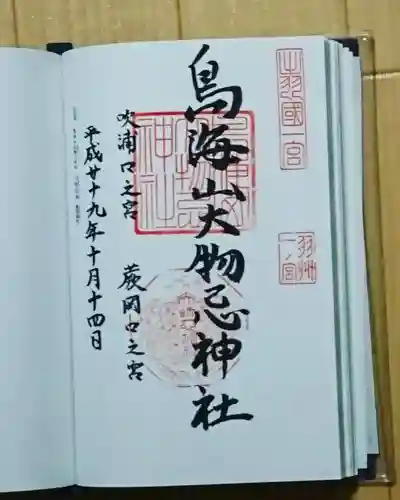 出羽國一宮
羽州一ノ宮
鳥海山大物忌神社
吹浦口之宮
蕨岡口之宮
平成廿十九年十月十四日